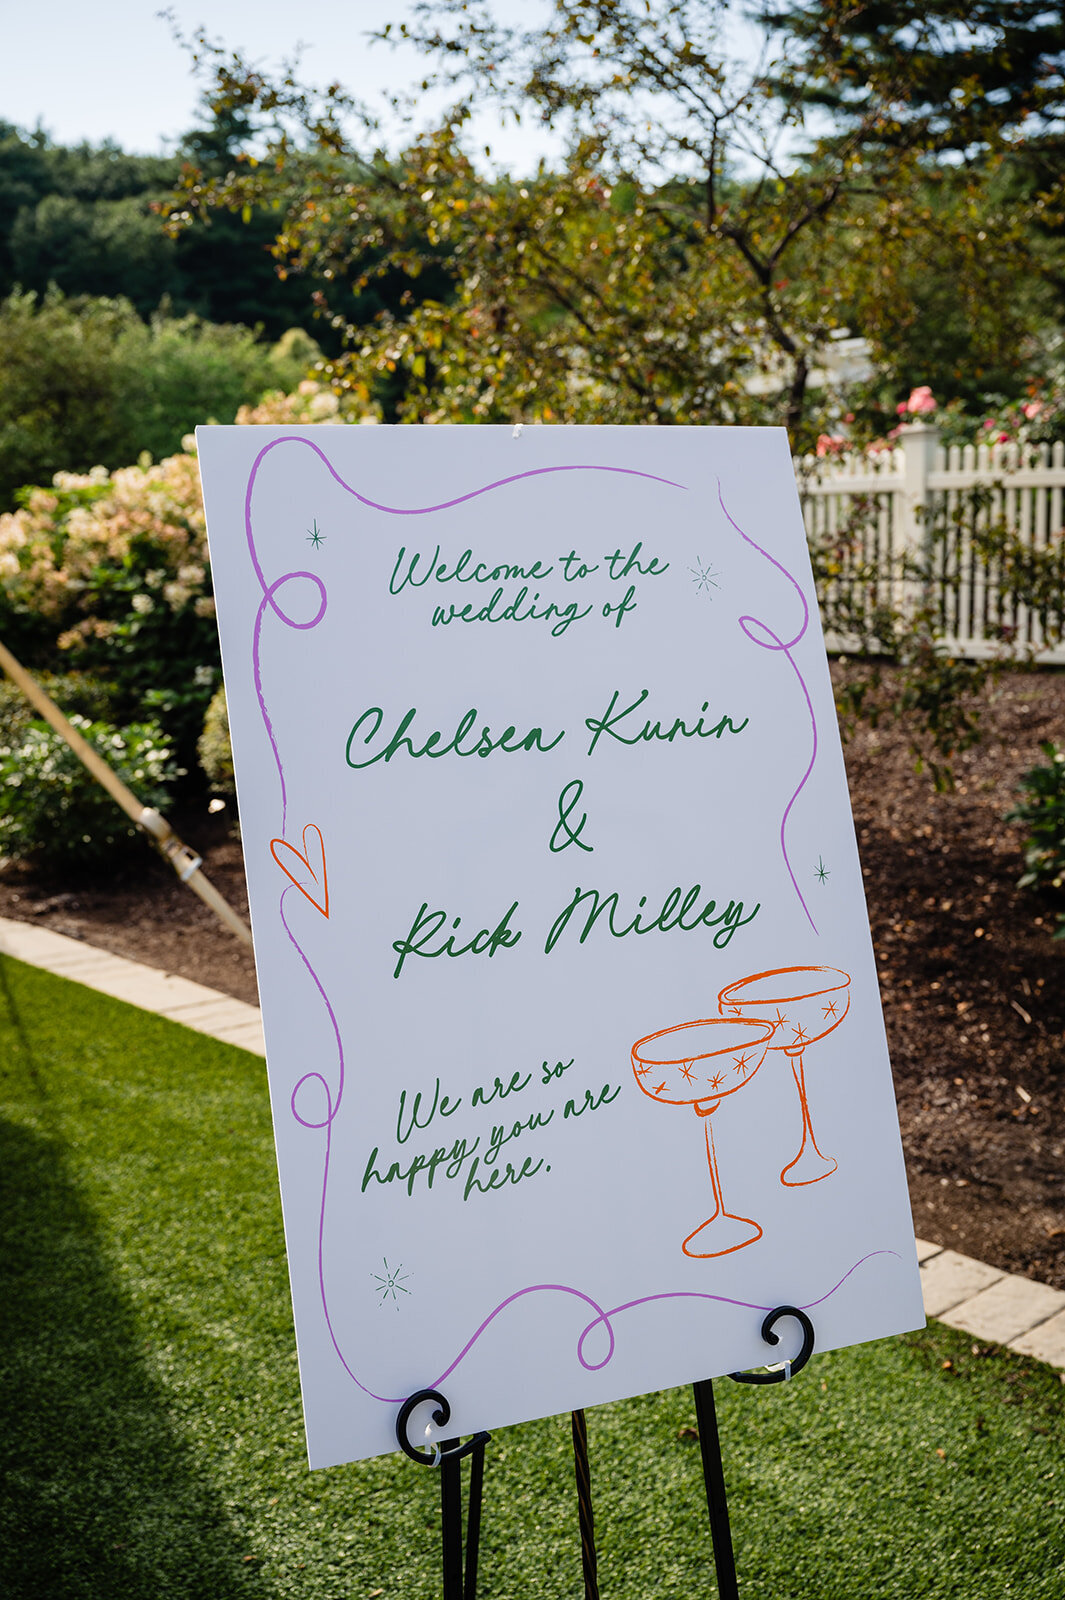 Welcome to the
wedding of
Chelsea Kunin
&
Rick Milley
We are so
happy you are
here.